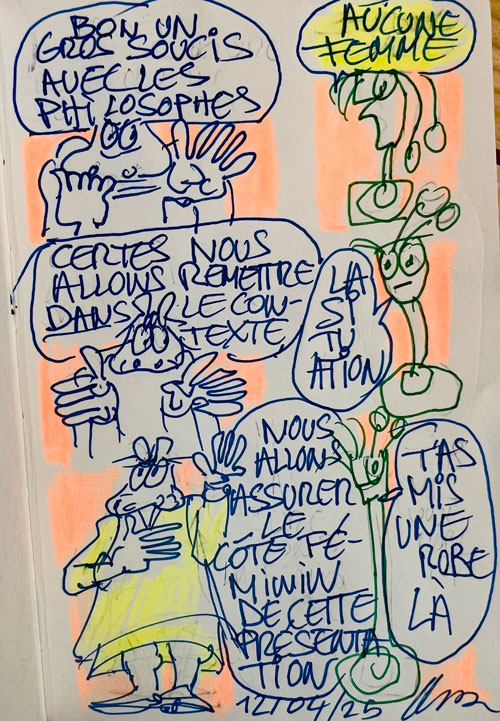 BON UN
GROS SOUCIS
AVEC LES
PHILOSOPHES
AUCUNE
FEMME
CERTES NOUS
ALLONS REMETTRE
DANS LE CON-
TEXTE
LA
SI
TU
ATION
NOUS
ALLONS
ASSURER
LE
CÔTÉ FÉ-
MININ
DE CETTE
PRÉSENTA
TION
T'AS
MIS
UNE
ROBE
LÀ
12/04/25